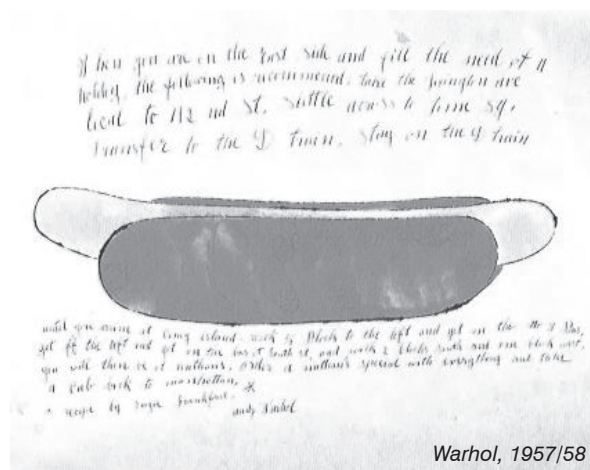 When you are on the East side and fill the need of a
holiday, the following is recommend. take the lexington ave
local to 42 nd st. shuttle across to time sq.
Transfer to the D train. stay on the D train
until you arrive at Coney island. walk 5 Blocks to the left and get on the No 3 Bus,
get off the left and get on the bus at south st, and walk 2 blocks south and one block west.
you will there be at nathans. order a nathans special with everything and take
a cab back to manhattan.
a recipe by
andy
Warhol, 1957/58